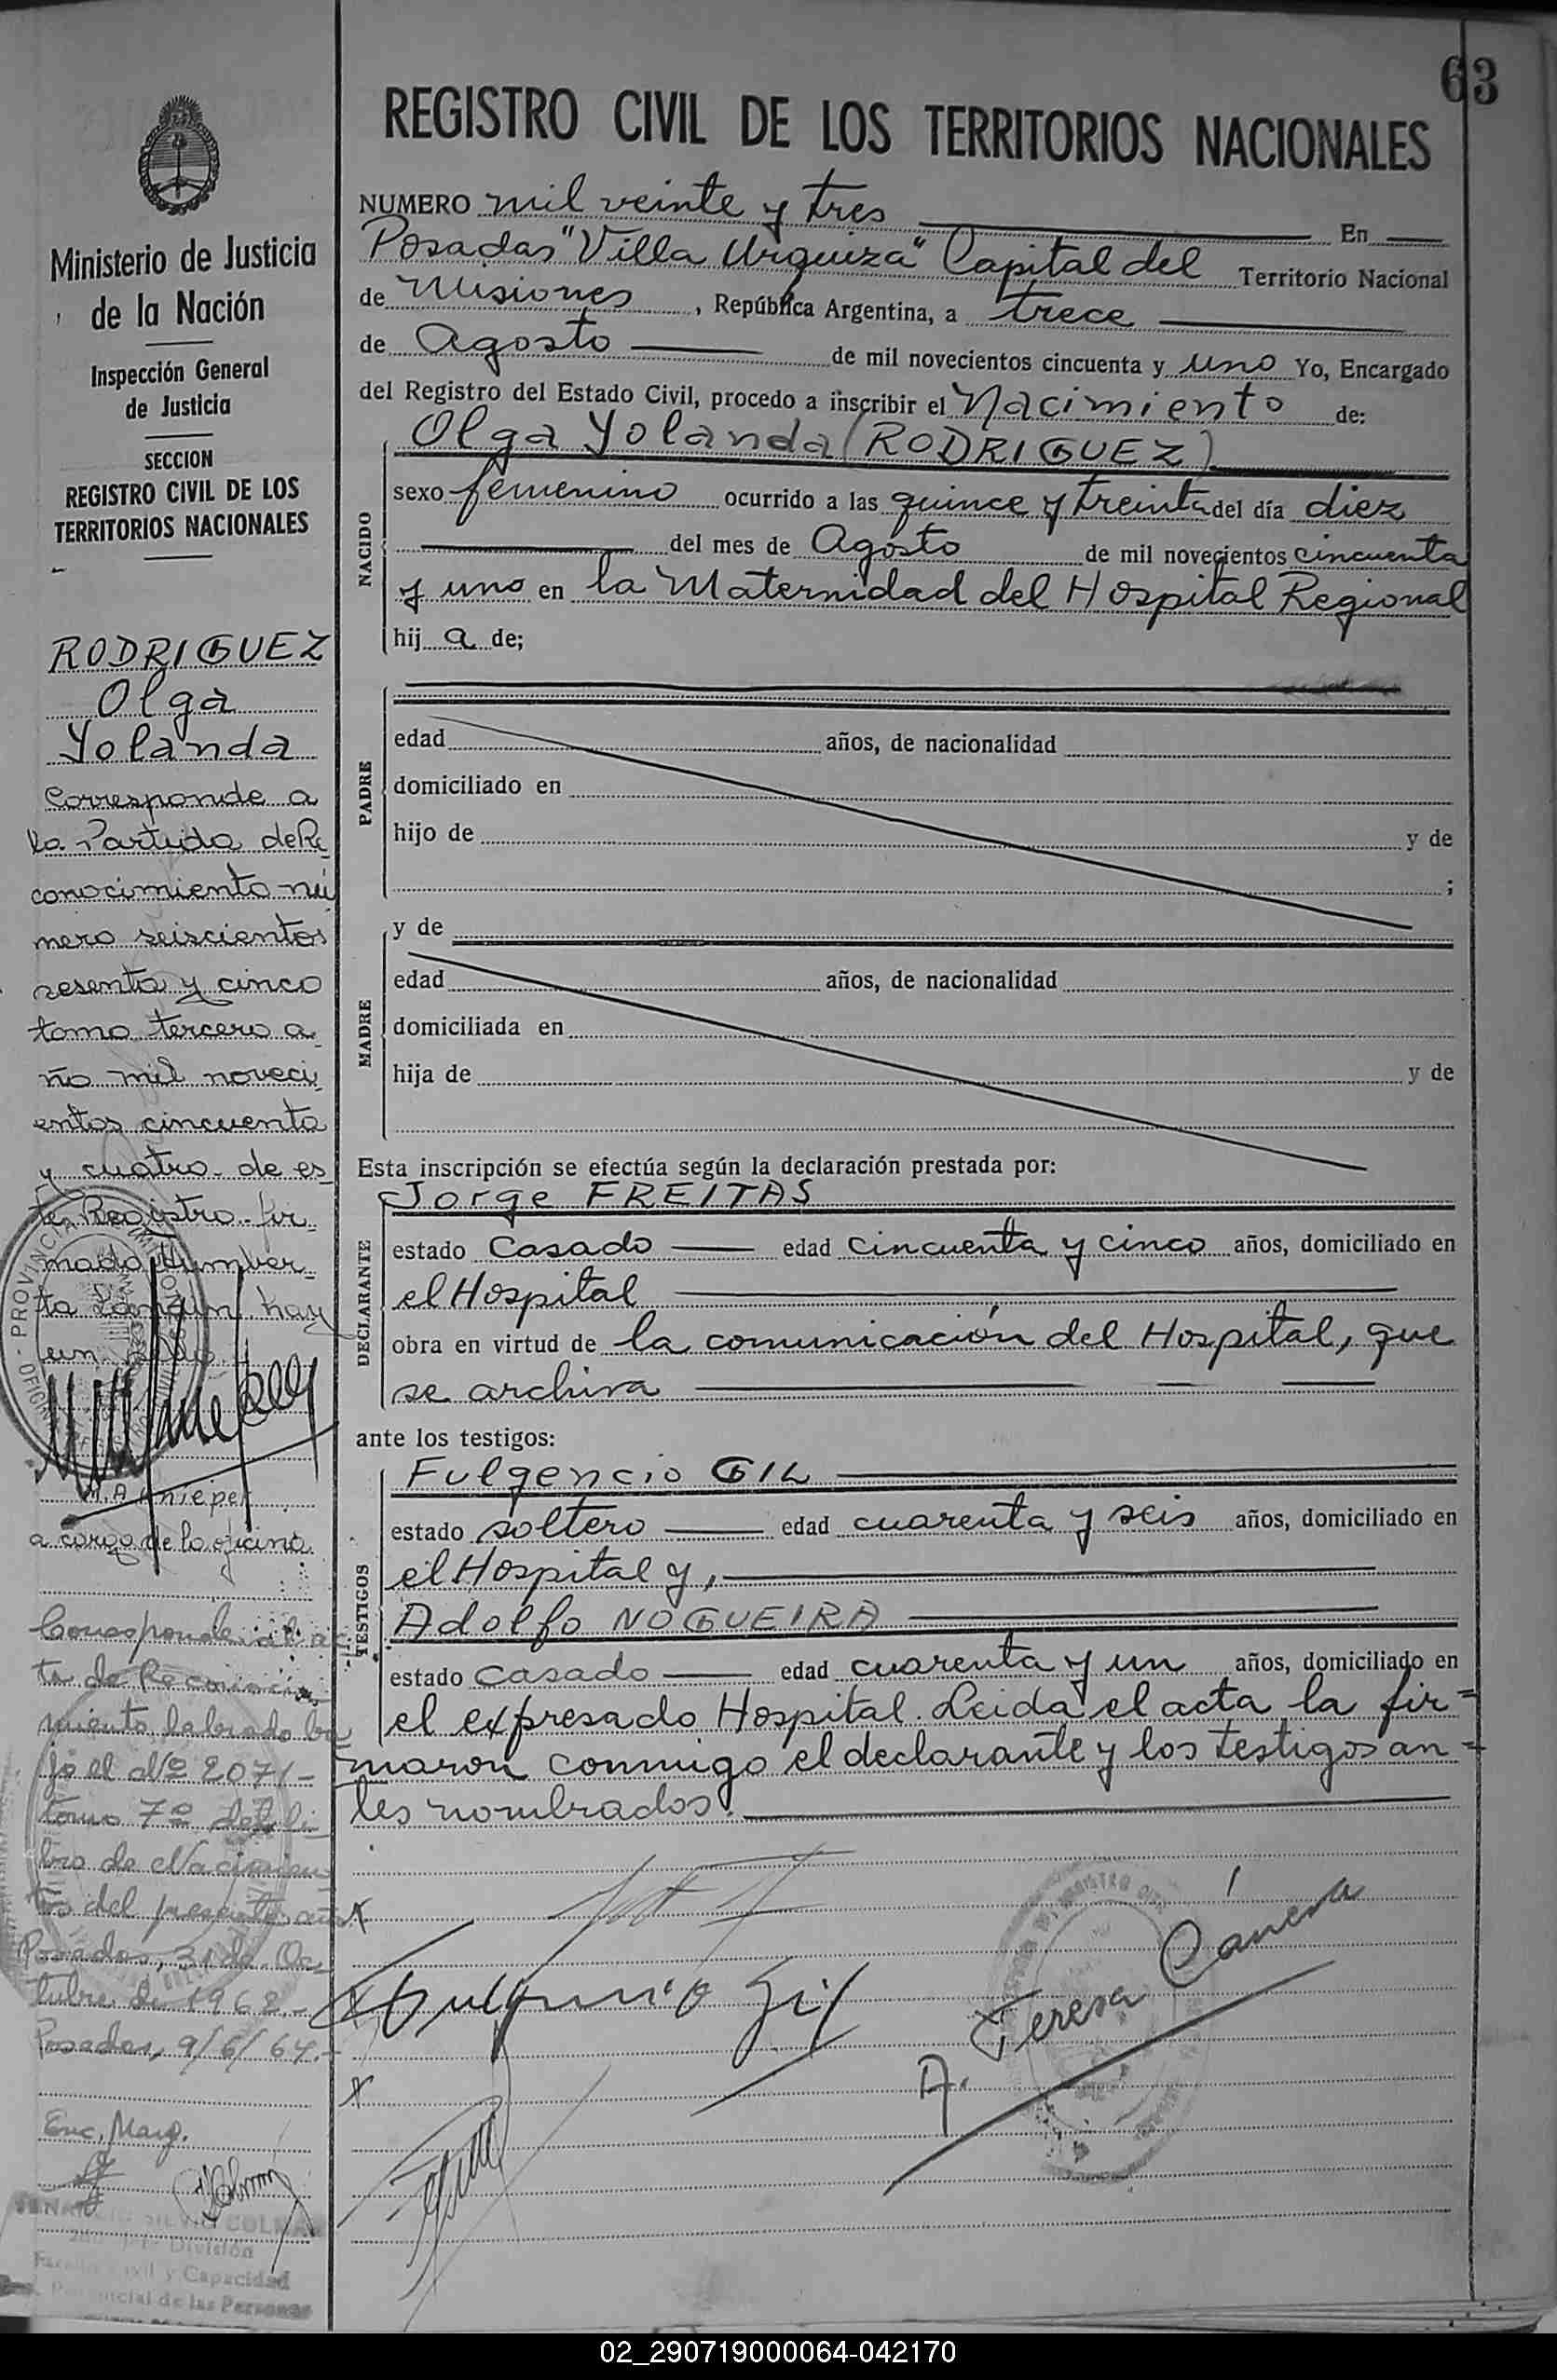 63
REGISTRO CIVIL DE LOS TERRITORIOS NACIONALES
Ministerio de Justicia
de la Nación
Inspección General
de Justicia
SECCION
REGISTRO CIVIL DE LOS
TERRITORIOS NACIONALES
RODRIGUEZ
Olga
Yolanda
Corresponde a
la Partida de Re
conocimiento nú
mero seiscientos
sesenta y cinco
tomo tercero a
ño mil noveci
entos cincuenta
y cuatro de es
te Registro fir
mado Humber
to hay
un
a cargo de la oficina
Corresponde al ac
ta de Reconoci
miento labrado ba
jo el Nº 2071-
tomo 7º del li
bro de Nacimien
tos del presente año
Posadas, 31 de Oc
tubre de 1962.-
Posadas, 9/6/64.-
Enc. Marg.
COLMAN
División
Civil y Capacidad
Provincial de las Personas
NUMERO mil veinte y tres En
Posadas "Villa Urquiza" Capital del Territorio Nacional
de Misiones, República Argentina, a trece
de Agosto de mil novecientos cincuenta y uno Yo, Encargado
del Registro del Estado Civil, procedo a inscribir el Nacimiento de:
Olga Yolanda (RODRIGUEZ)
NACIDO
sexo femenino ocurrido a las quince y treinta del día diez
del mes de Agosto de mil novecientos cincuenta
y uno en la Maternidad del Hospital Regional
hija de;
PADRE
edad años, de nacionalidad
domiciliado en
hijo de y de
;
MADRE
y de
edad años, de nacionalidad
domiciliada en
hija de y de
Esta inscripción se efectúa según la declaración prestada por:
DECLARANTE
Jorge FREITAS
estado Casado edad cincuenta y cinco años, domiciliado en
el Hospital
obra en virtud de la comunicación del Hospital, que
se archiva
ante los testigos:
TESTIGOS
Fulgencio GIL
estado soltero edad cuarenta y seis años, domiciliado en
el Hospital y,
Adolfo NOGUEIRA
estado casado edad cuarenta y un años, domiciliado en
el expresado Hospital. Leida el acta, la fir=
maron conmigo el declarante y los testigos an=
tes nombrados.
Fulgencio Gil
A. Teresa Cáneva
02_290719000064-042170